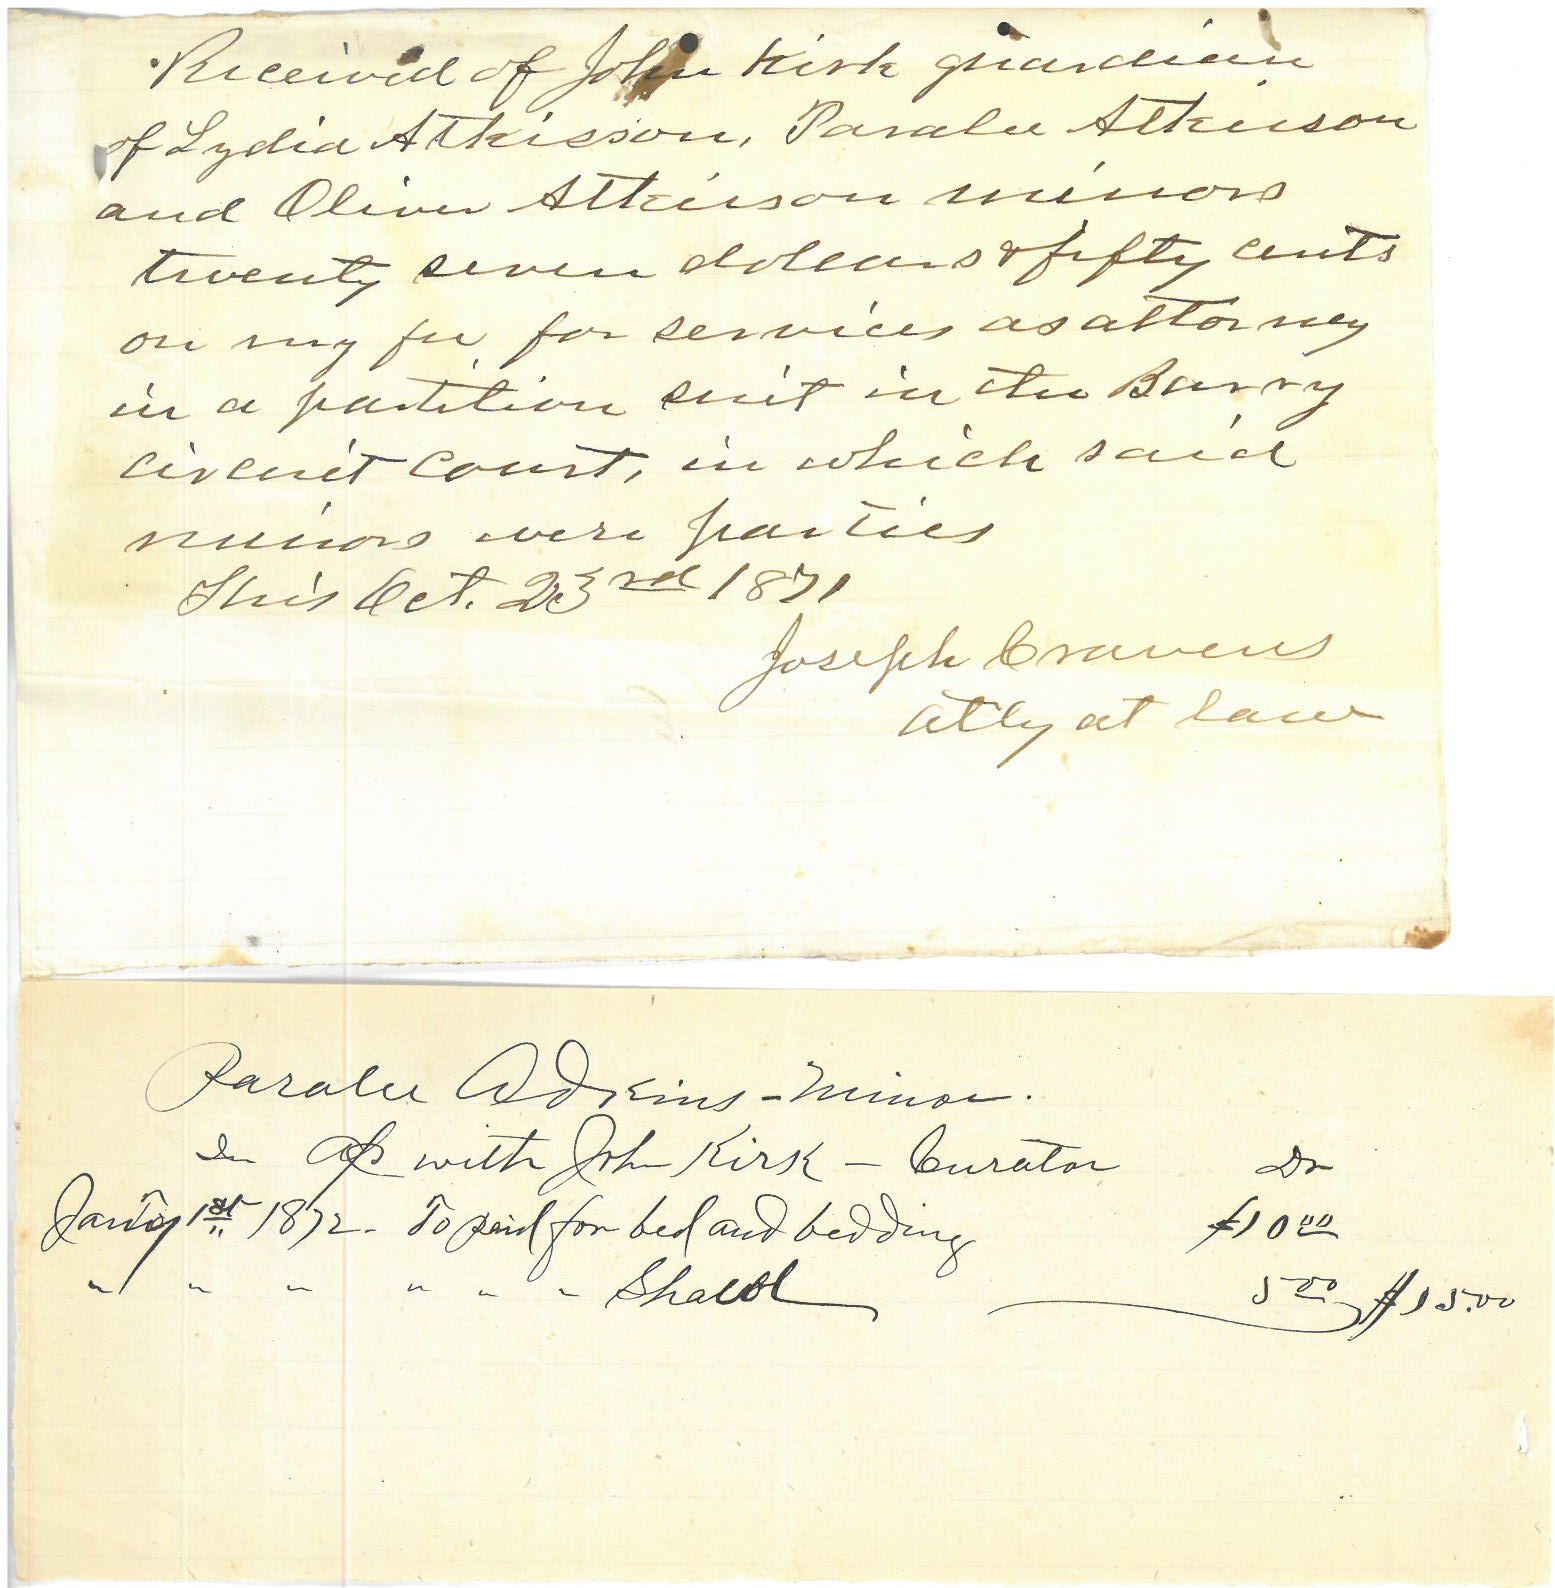 Received of John Kirk guardian
of Lydia Atkisson, Paralee Atkinson
and Oliver Atkinson minors
twenty seven dollars & fifty cents
on my fee for services as attorney
in a partition suit in the Barry
circuit court, in which said
minors were parties
This Oct. 23rd 1871
Joseph Cravens
Atty at law
Paralee Adkins - Minor.
In a/c with John Kirk - Curator Dr
1st 1872 - To paid for bed and bedding $10 00
" " " " " " Shawl 5 00 $15.00